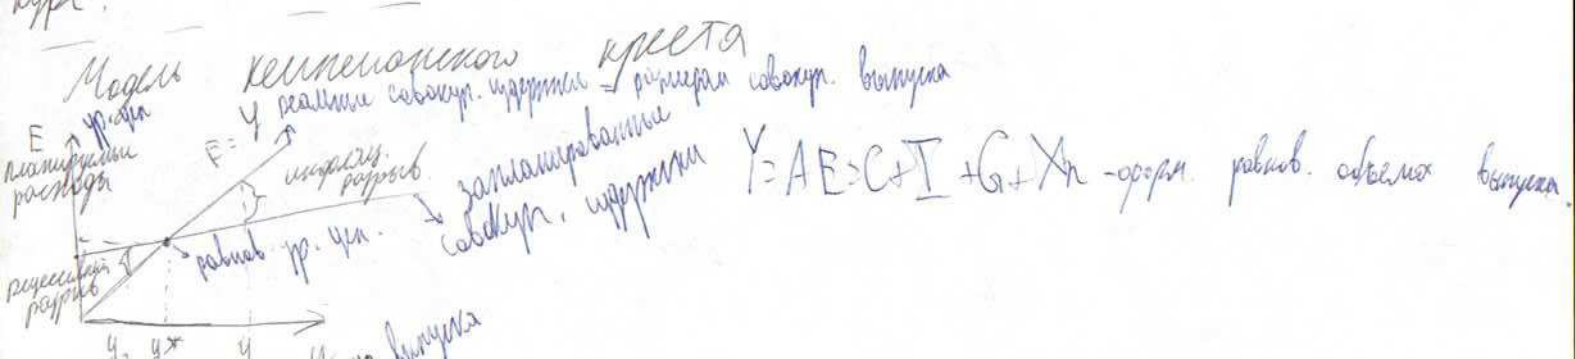 курс.
Модель кейнсианского креста
E
ур. цен
планируемые
расходы
E=Y реальные совокуп. издержки = размерам совокуп. выпуска
инфляц.
разрыв.
запланированные
совокуп. издержки
Y=AE=C+I+G+Xn - форм. равнов. объема выпуска.
равнов. ур. цен.
рецессивный
разрыв
y₁ y* y
выпуска